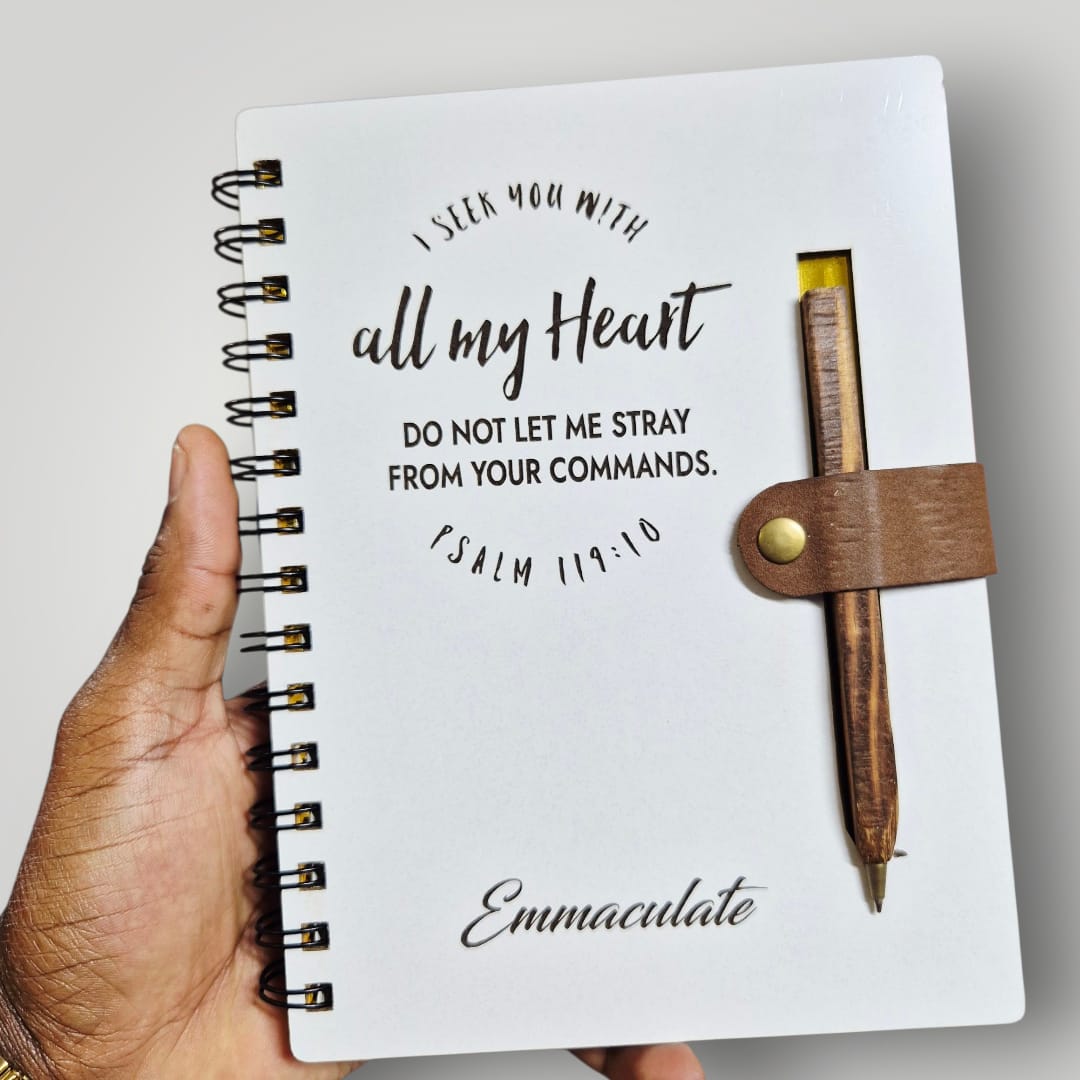 I SEEK YOU WITH
all my Heart
DO NOT LET ME STRAY
FROM YOUR COMMANDS.
PSALM 119:10
Emmaculate